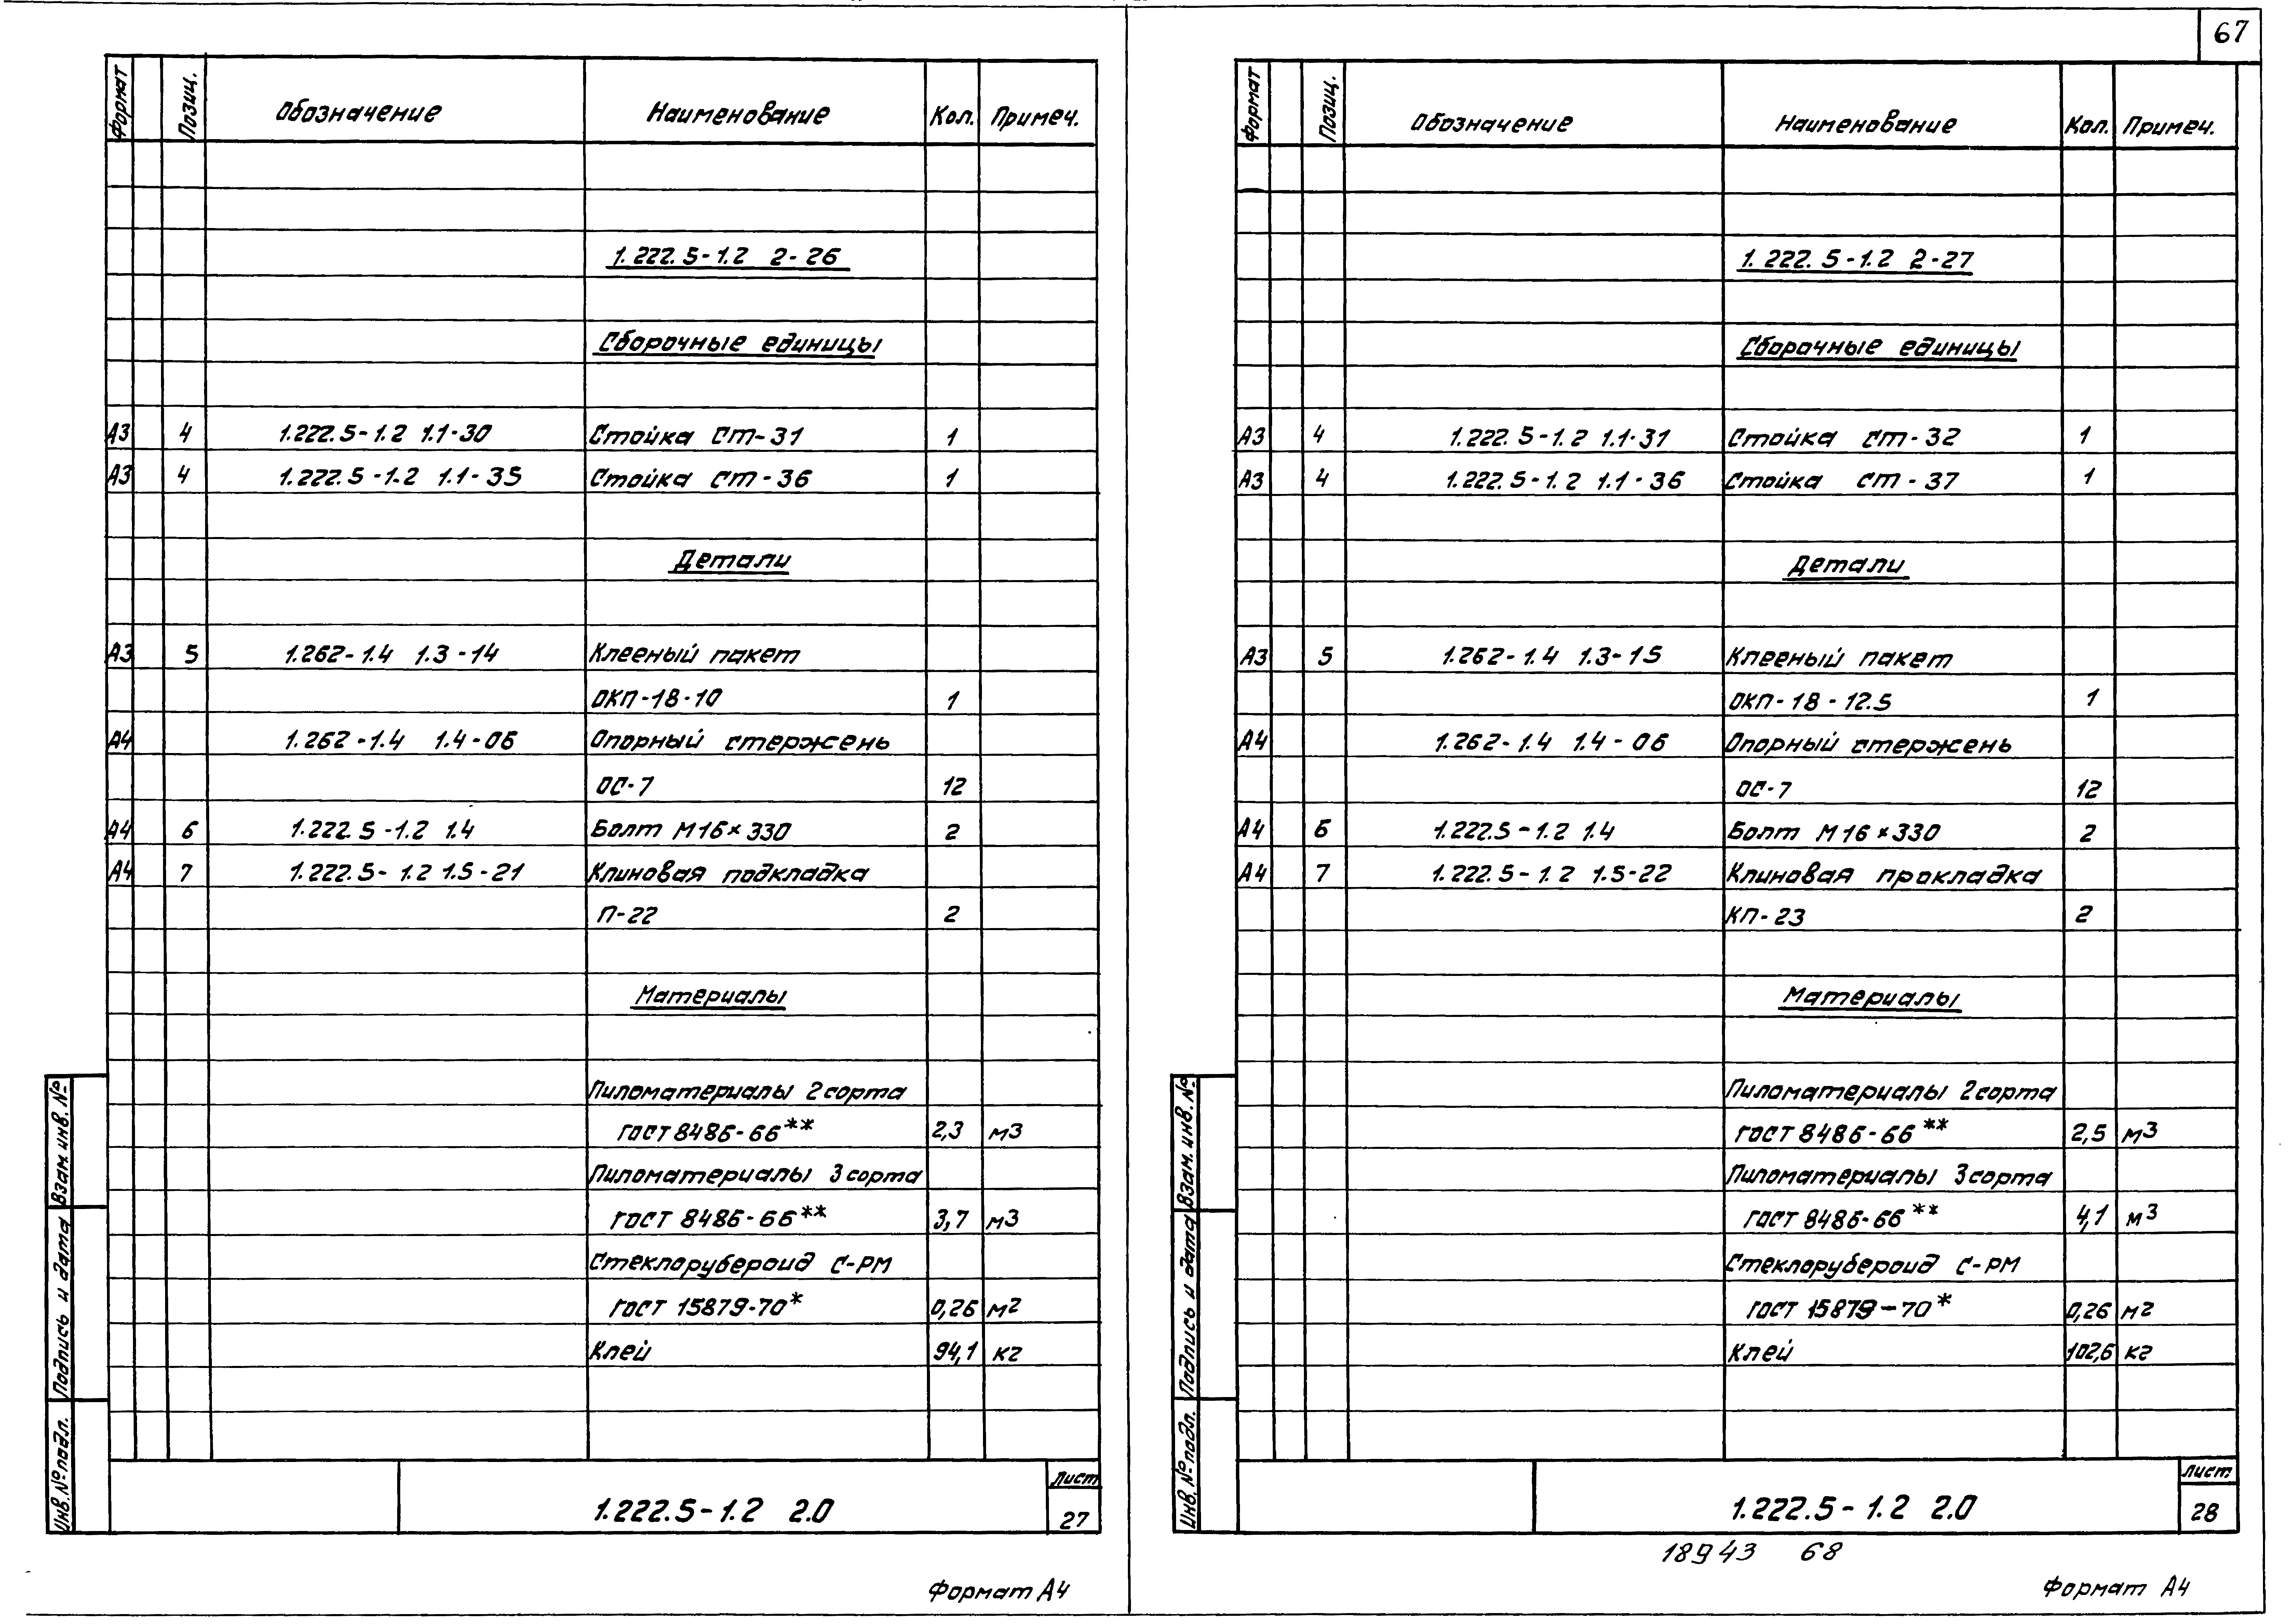 67
Формат Позиц. Обозначение Наименование Кол. Примеч.
1.222.5-1.2 2-26
Сборочные единицы
А3 4 1.222.5-1.2 1.1-30 Стойка Ст-31 1
А3 4 1.222.5-1.2 1.1-35 Стойка Ст-36 1
Детали
А3 5 1.262-1.4 1.3-14 Клееный пакет
ОКП-18-10 1
А4 1.262-1.4 1.4-06 Опорный стержень
ОС-7 12
А4 6 1.222.5-1.2 1.4 Болт М16×330 2
А4 7 1.222.5-1.2 1.5-21 Клиновая подкладка
П-22 2
Материалы
Пиломатериалы 2 сорта
ГОСТ 8486-66** 2,3 м3
Пиломатериалы 3 сорта
ГОСТ 8486-66** 3,7 м3
Стеклорубероид С-РМ
ГОСТ 15879-70* 0,26 м2
Клей 94,1 кг
Инв. № подл. Подпись и дата Взам. инв. №
1.222.5-1.2 2.0
Лист
27
Формат А4
Формат Позиц. Обозначение Наименование Кол. Примеч.
1.222.5-1.2 2-27
Сборочные единицы
А3 4 1.222.5-1.2 1.1-31 Стойка Ст-32 1
А3 4 1.222.5-1.2 1.1-36 Стойка Ст-37 1
Детали
А3 5 1.262-1.4 1.3-15 Клееный пакет
ОКП-18-12.5 1
А4 1.262-1.4 1.4-06 Опорный стержень
ОС-7 12
А4 6 1.222.5-1.2 1.4 Болт М16×330 2
А4 7 1.222.5-1.2 1.5-22 Клиновая прокладка
КП-23 2
Материалы
Пиломатериалы 2 сорта
ГОСТ 8486-66** 2,5 м3
Пиломатериалы 3 сорта
ГОСТ 8486-66** 4,1 м3
Стеклорубероид С-РМ
ГОСТ 15879-70* 0,26 м2
Клей 102,6 кг
Инв. № подл. Подпись и дата Взам. инв. №
1.222.5-1.2 2.0
Лист
28
18943 68
Формат А4